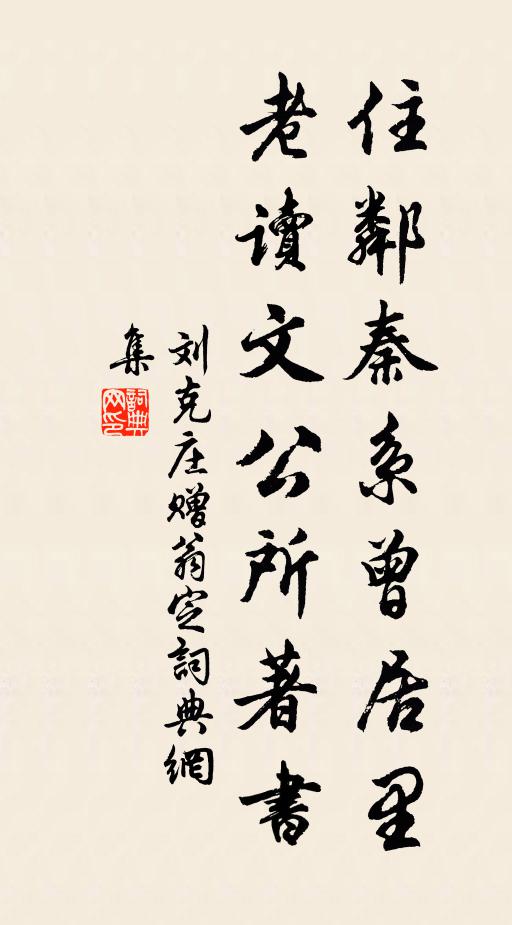 住鄰秦系曾居里
老讀文公所著書
刘克庄赠翁定詞典網
集
詞典
网印